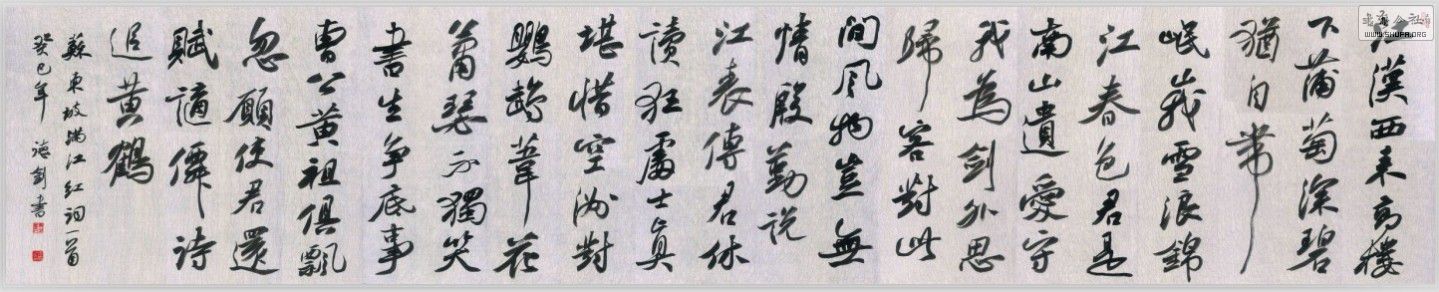 江漢西来高樓
下蒲萄深碧
猶自帶
岷峨雪浪錦
江春色君是
南山遺愛守
我為劍外思
歸客對此
間風物豈無
情殷勤說
江表傳君休
讀狂處士真
堪惜空洲對
鸚鵡葦花
蕭瑟不獨笑
書生争底事
曹公黄祖俱飄
忽願使君還
賦謫僊詩
追黄鶴
蘇東坡滿江紅詞一首
癸巳年 劍書
書法公社
WWW.SHUFA.ORG